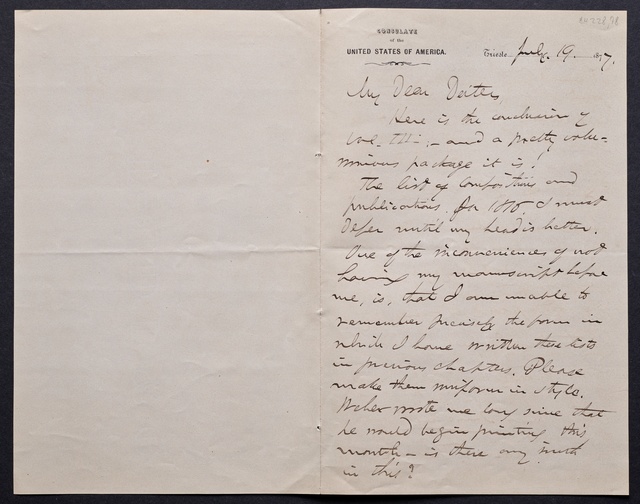 CONSULATE
of the
UNITED STATES OF AMERICA.
Trieste July. 19. 1877.
My Dear Deiters,
Here is the conclusion of
vol. III. - and a pretty volu-
minous package it is!
The list of compositions and
publications for 1816 I must
defer until my head is better.
One of the inconveniences of not
having my manuscript before
me, is, that I am unable to
remember precisely the form in
which I have written these lists
in previous chapters. Please
make them uniform in style.
Weber wrote me long since that
he would begin printing this
month - is there any truth
in this?